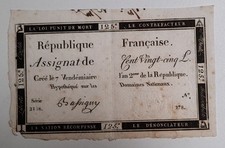 LA LOI PUNIT DE MORT 125 ₶ LE CONTREFACTEUR
République Française.
Assignat de Cent Vingt-cinq L.
Créé le 7 Vendémiaire l'an 2me de la République.
Hypothéqué sur les Domaines Nationaux.
Série
LA NATION RÉCOMPENSE 125 ₶ LE DÉNONCIATEUR